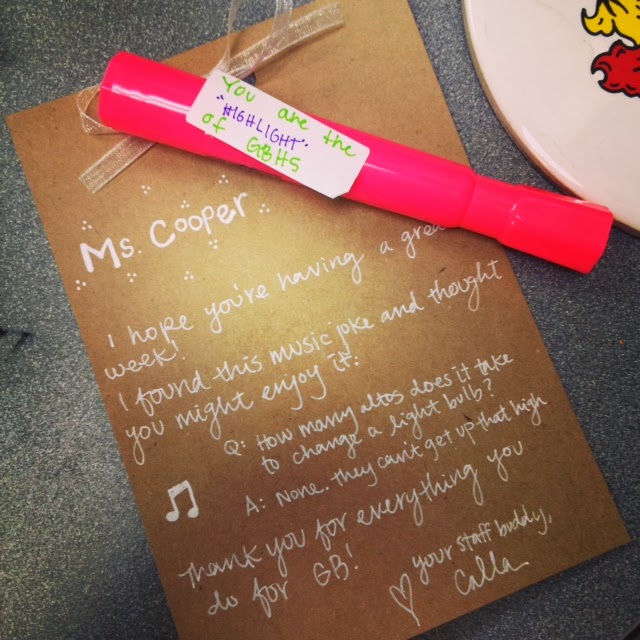 You are the
"HIGHLIGHT"
of GBHS
Ms. Cooper
I hope you're having a grea
week!
I found this music joke and thought
you might enjoy it:
Q: How many altos does it take
to change a light bulb?
A: None. they can't get up that high
Thank you for everything you
do for GB!
♡ your staff buddy,
Calla